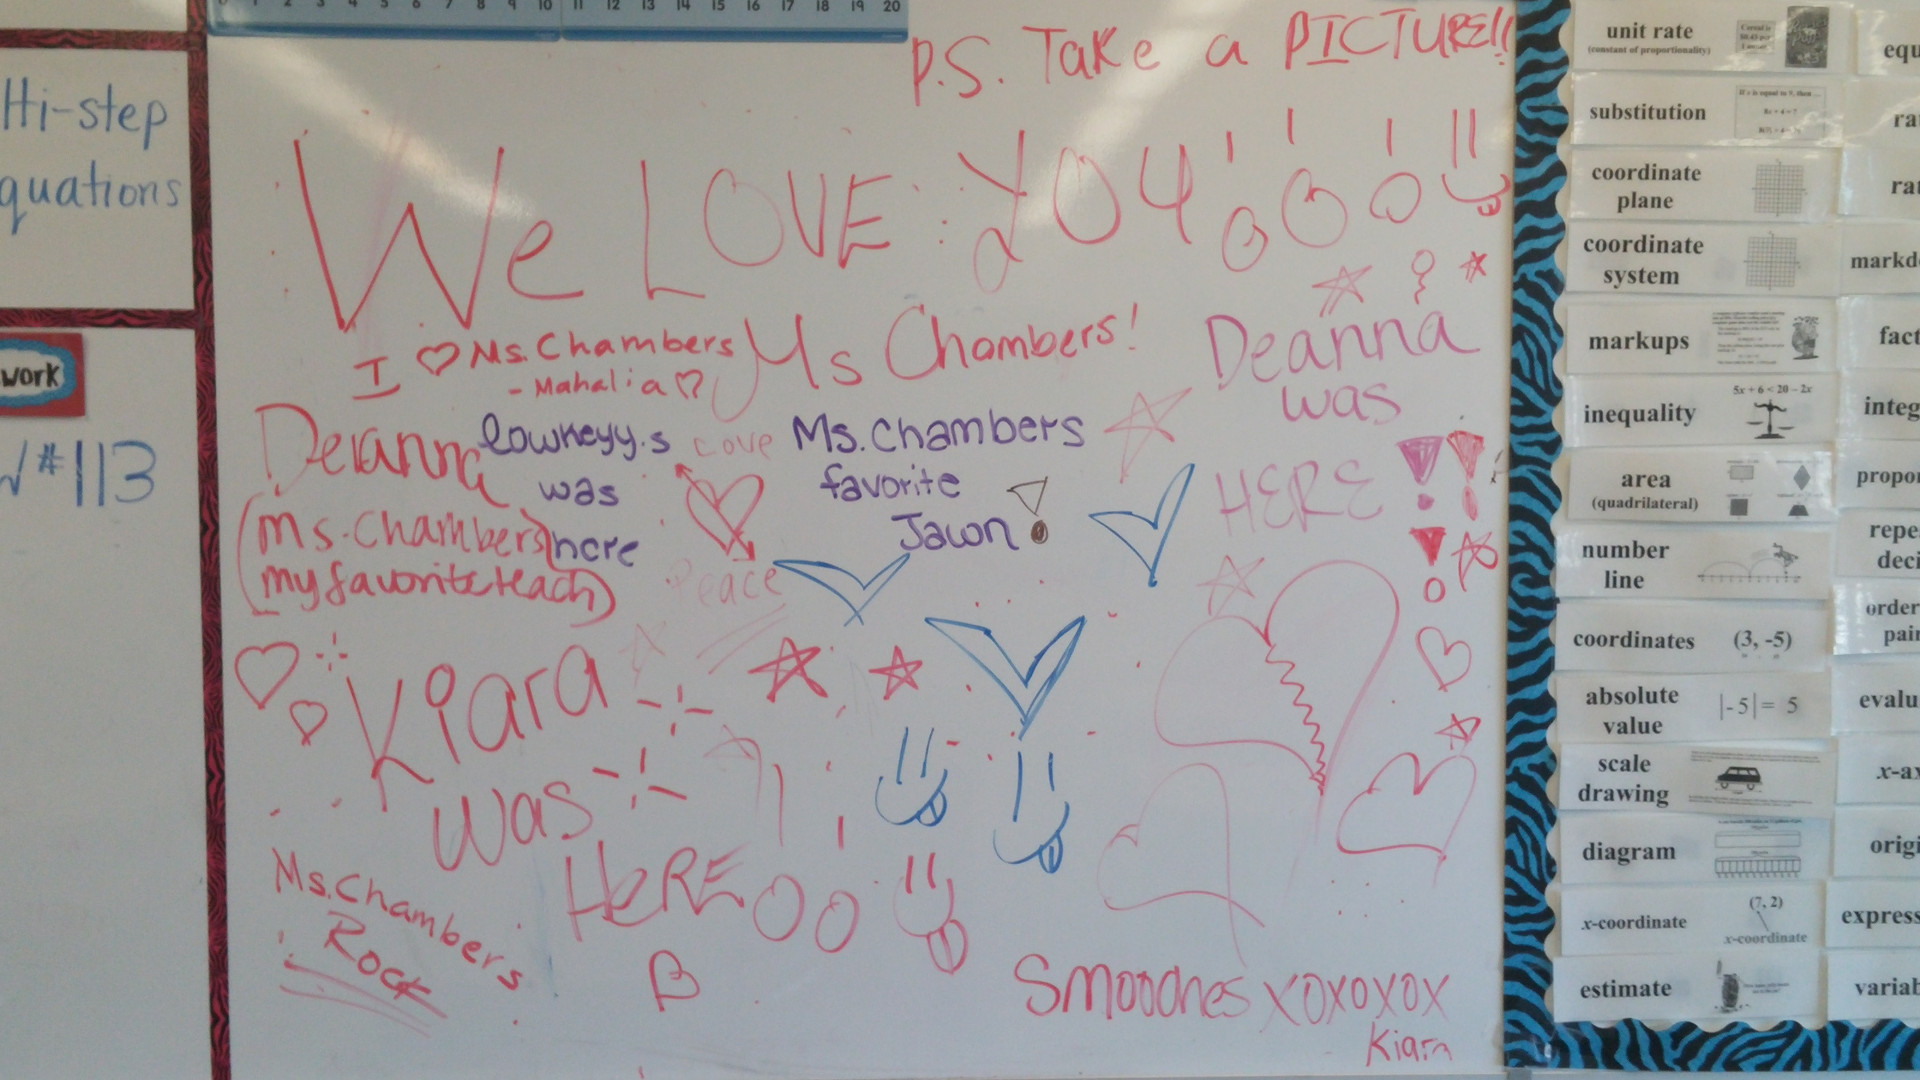 0 1 2 3 4 5 6 7 8 9 10 11 12 13 14 15 16 17 18 19 20
P.S. Take a PICTURE!!
We LOVE YOU!!!
I ♡ Ms. Chambers
- Mahalia ♡
Ms Chambers!
Deanna
was
HERE!!
Deianna
(Ms. Chambers
my favorite teach)
lowkeyy.s
was
here
Love
Peace
Ms. Chambers
favorite
Jawn!
Kiara
was
HeRE!!
Ms. Chambers
Rock
Smooches XOXOXOX
Kiara
lti-step
quations
work
#113
unit rate
(constant of proportionality)
substitution
coordinate
plane
coordinate
system
markups
inequality
5x + 6 < 20 - 2x
area
(quadrilateral)
number
line
coordinates (3, -5)
absolute
value
|-5| = 5
scale
drawing
diagram
x-coordinate
(7, 2)
x-coordinate
estimate
equ
ra
ra
markd
fact
integ
propor
repe
deci
order
pair
evalu
x-ax
origi
express
variab